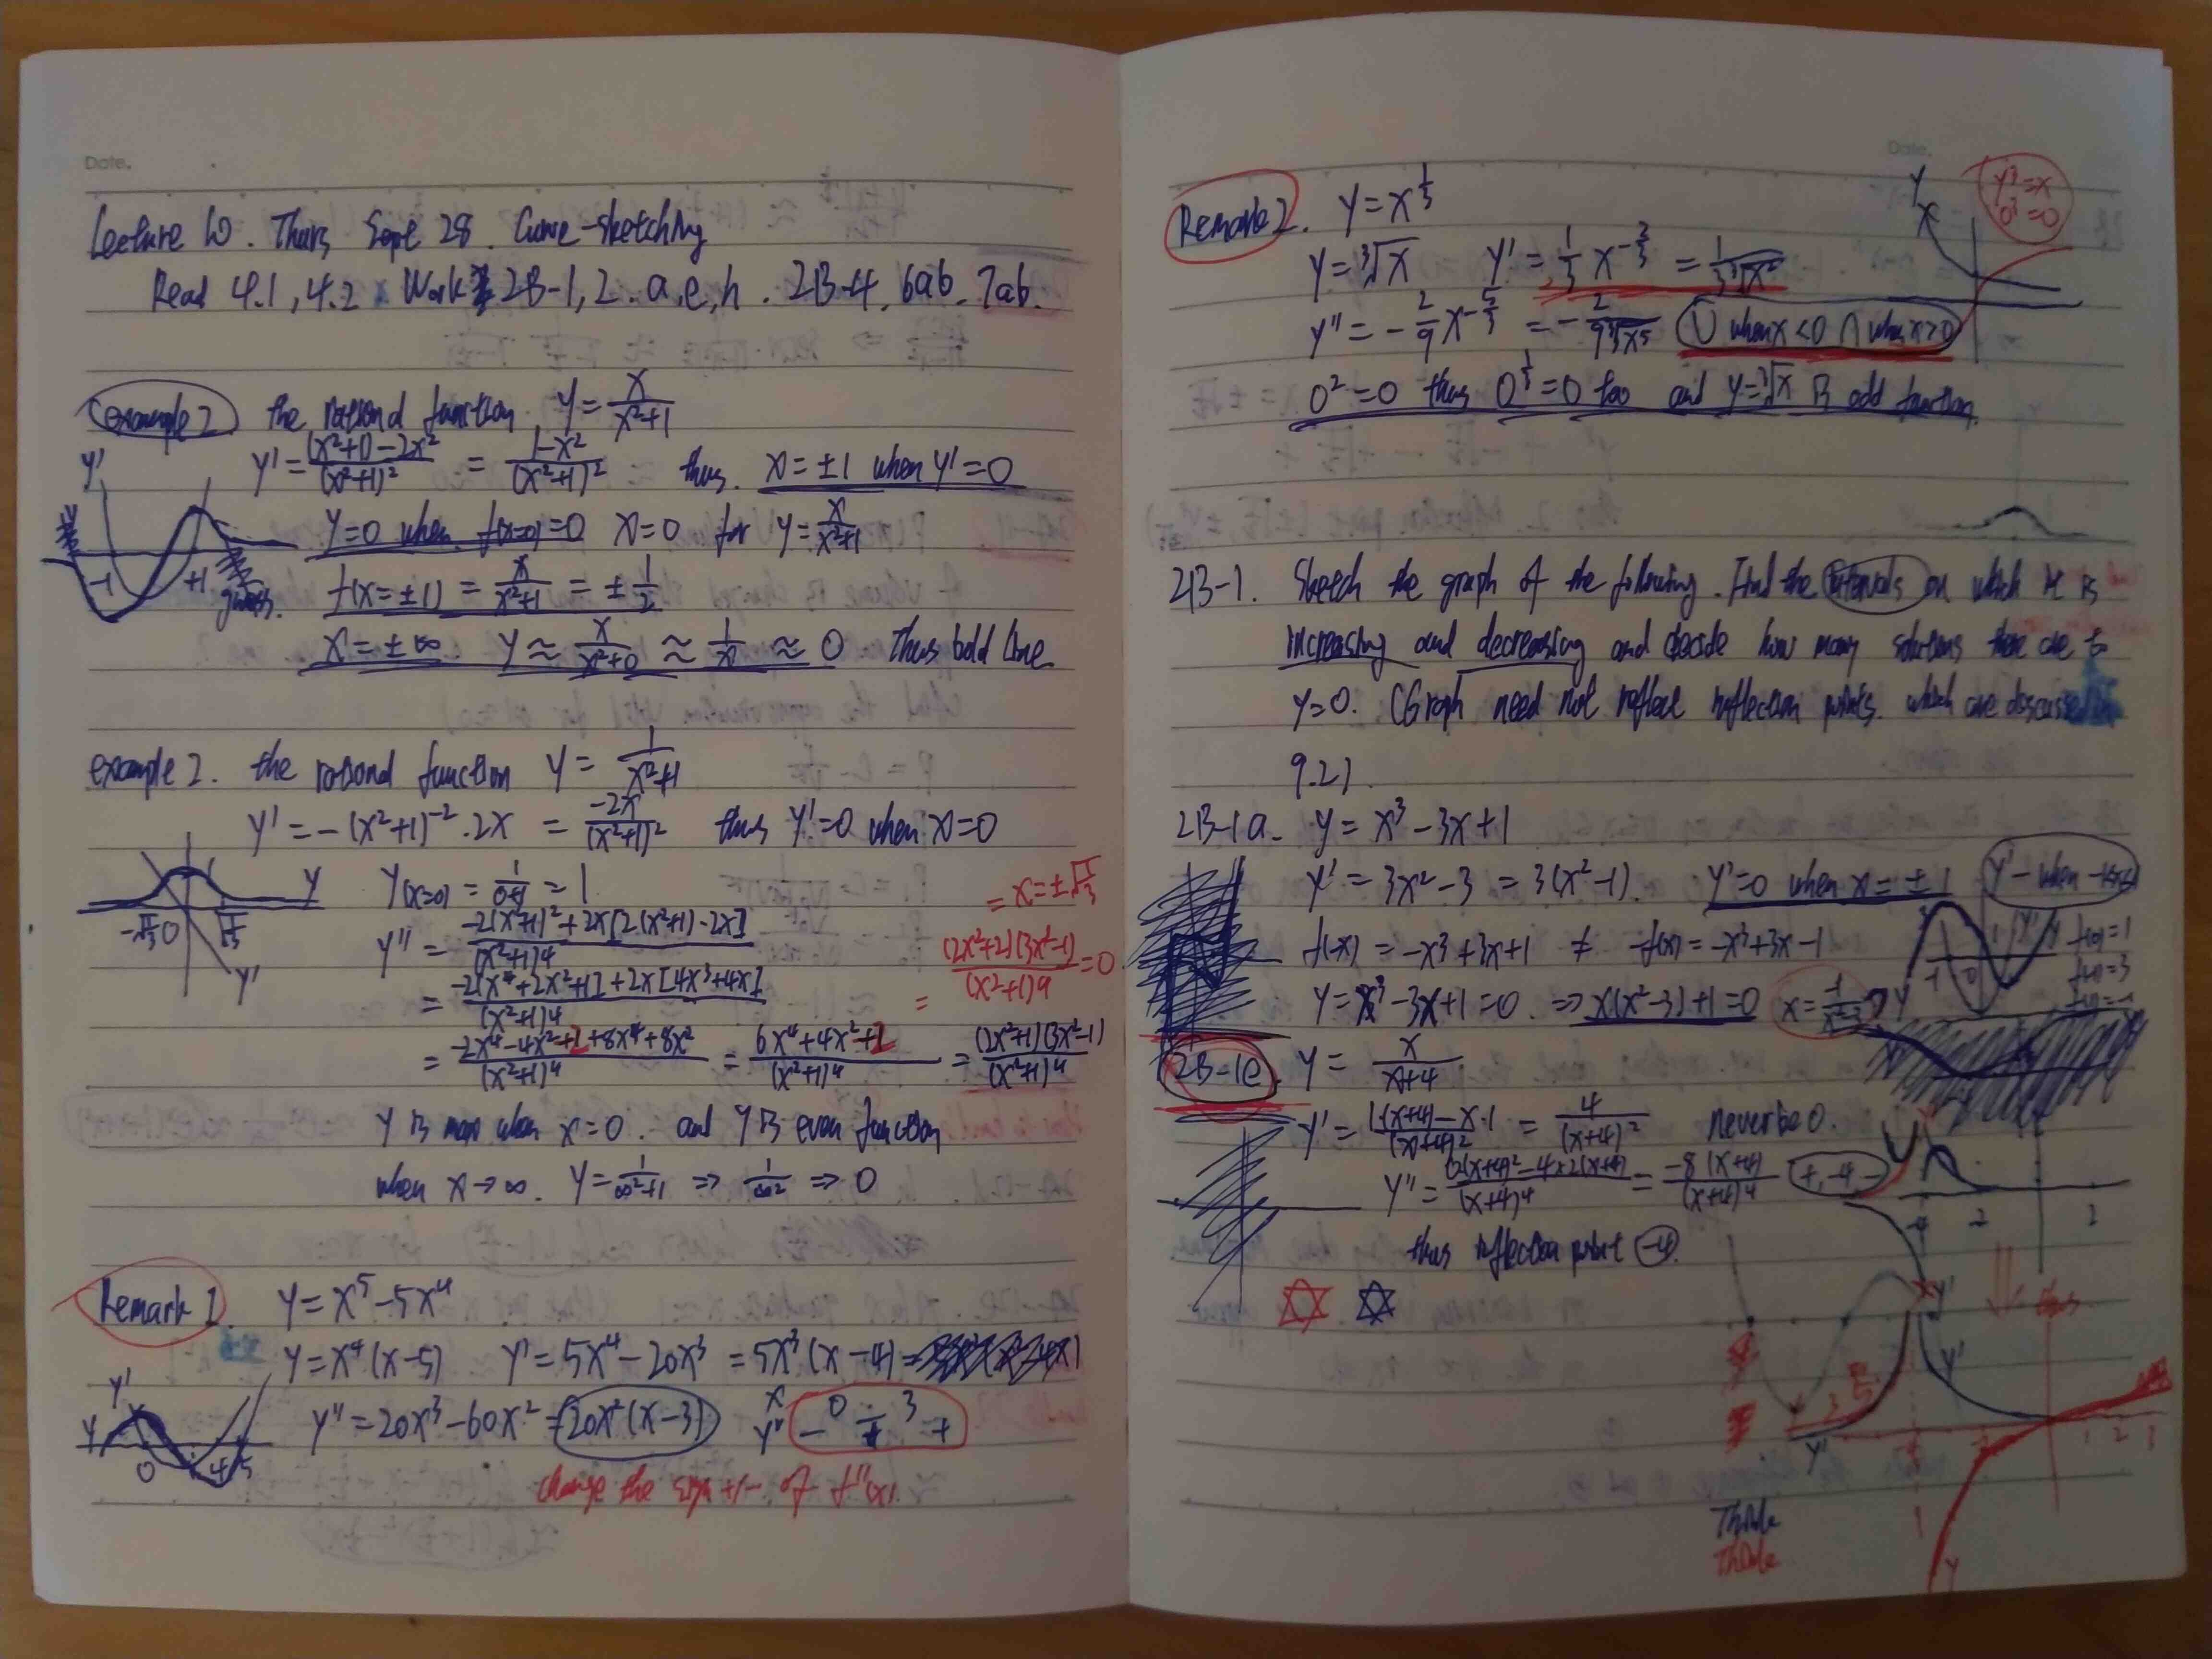 Date.
Lecture 10. Thurs Sept 28. Curve-sketching
Read 4.1, 4.2 Work 2B-1, 2. a, e, h. 2B-4, 6ab. 7ab.
example 2 the rational function y = x/(x²+1)
y' = ((x²+1)-2x²)/(x²+1)² = (1-x²)/(x²+1)² thus. x = ±1 when y'=0
y'
y=0 when f(x=0)=0 x=0 for y = x/(x²+1)
-1 +1 guess. f(x=±1) = x/(x²+1) = ±1/2
x=±∞ y ≈ x/(x²+0) ≈ 1/x ≈ 0 thus bold line
example 2. the rational function y = 1/(x²+1)
y' = -(x²+1)⁻² · 2x = -2x/(x²+1)² thus y'=0 when x=0
y(x=0) = 1/(0+1) = 1
y
-√(1/3) 0 √(1/3)
y'
= x=±√(1/3)
y'' = (-2(x²+1)²+2x[2(x²+1)·2x])/(x²+1)⁴
= (2x²+2)(3x²-1)/(x²+1)⁴ = 0
= (-2[x⁴+2x²+1]+2x[4x³+4x])/(x²+1)⁴
= (-2x⁴-4x²+2+8x⁴+8x²)/(x²+1)⁴ = (6x⁴+4x²+2)/(x²+1)⁴ = (2x²+1)(3x²-1)/(x²+1)⁴
y is max when x=0. and y is even function
when x→∞. y = 1/(∞²+1) ⇒ 1/∞² ⇒ 0
Remark 1. y = x⁵-5x⁴
y = x⁴(x-5) y' = 5x⁴-20x³ = 5x³(x-4)
y'' = 20x³-60x² = 20x²(x-3) x 0 3
y'' - +
y' y 0 4 5
change the sign +/- of f''(x).
Date.
Remark 2. y = x^(1/3)
y³=x
0³=0
y = ³√x y' = 1/3 x^(-2/3) = 1/(3³√x²)
y'' = -2/9 x^(-5/3) = -2/(9³√x⁵) ∪ when x<0 ∩ when x>0
0²=0 thus 0^(1/3)=0 too and y=³√x is odd function.
2B-1. Sketch the graph of the following. Find the intervals on which it is
increasing and decreasing and decide how many solutions there are to
y=0. (Graph need not reflect inflection points. which are discussed in
9.2)
2B-1a. y = x³-3x+1
y' = 3x²-3 = 3(x²-1). y'=0 when x=±1
f(-x) = -x³+3x+1 ≠ -f(x) = -x³+3x-1
f(0)=1
y = x³-3x+1=0. ⇒ x(x²-3)+1=0
2B-1e. y = x/(x+4)
y' = (1·(x+4)-x·1)/(x+4)² = 4/(x+4)² never be 0.
y'' = (0(x+4)²-4×2(x+4))/(x+4)⁴ = -8(x+4)/(x+4)⁴ +, -4, -
thus inflection point -4.
thus.
y'
y'
y'
1 2 3
y